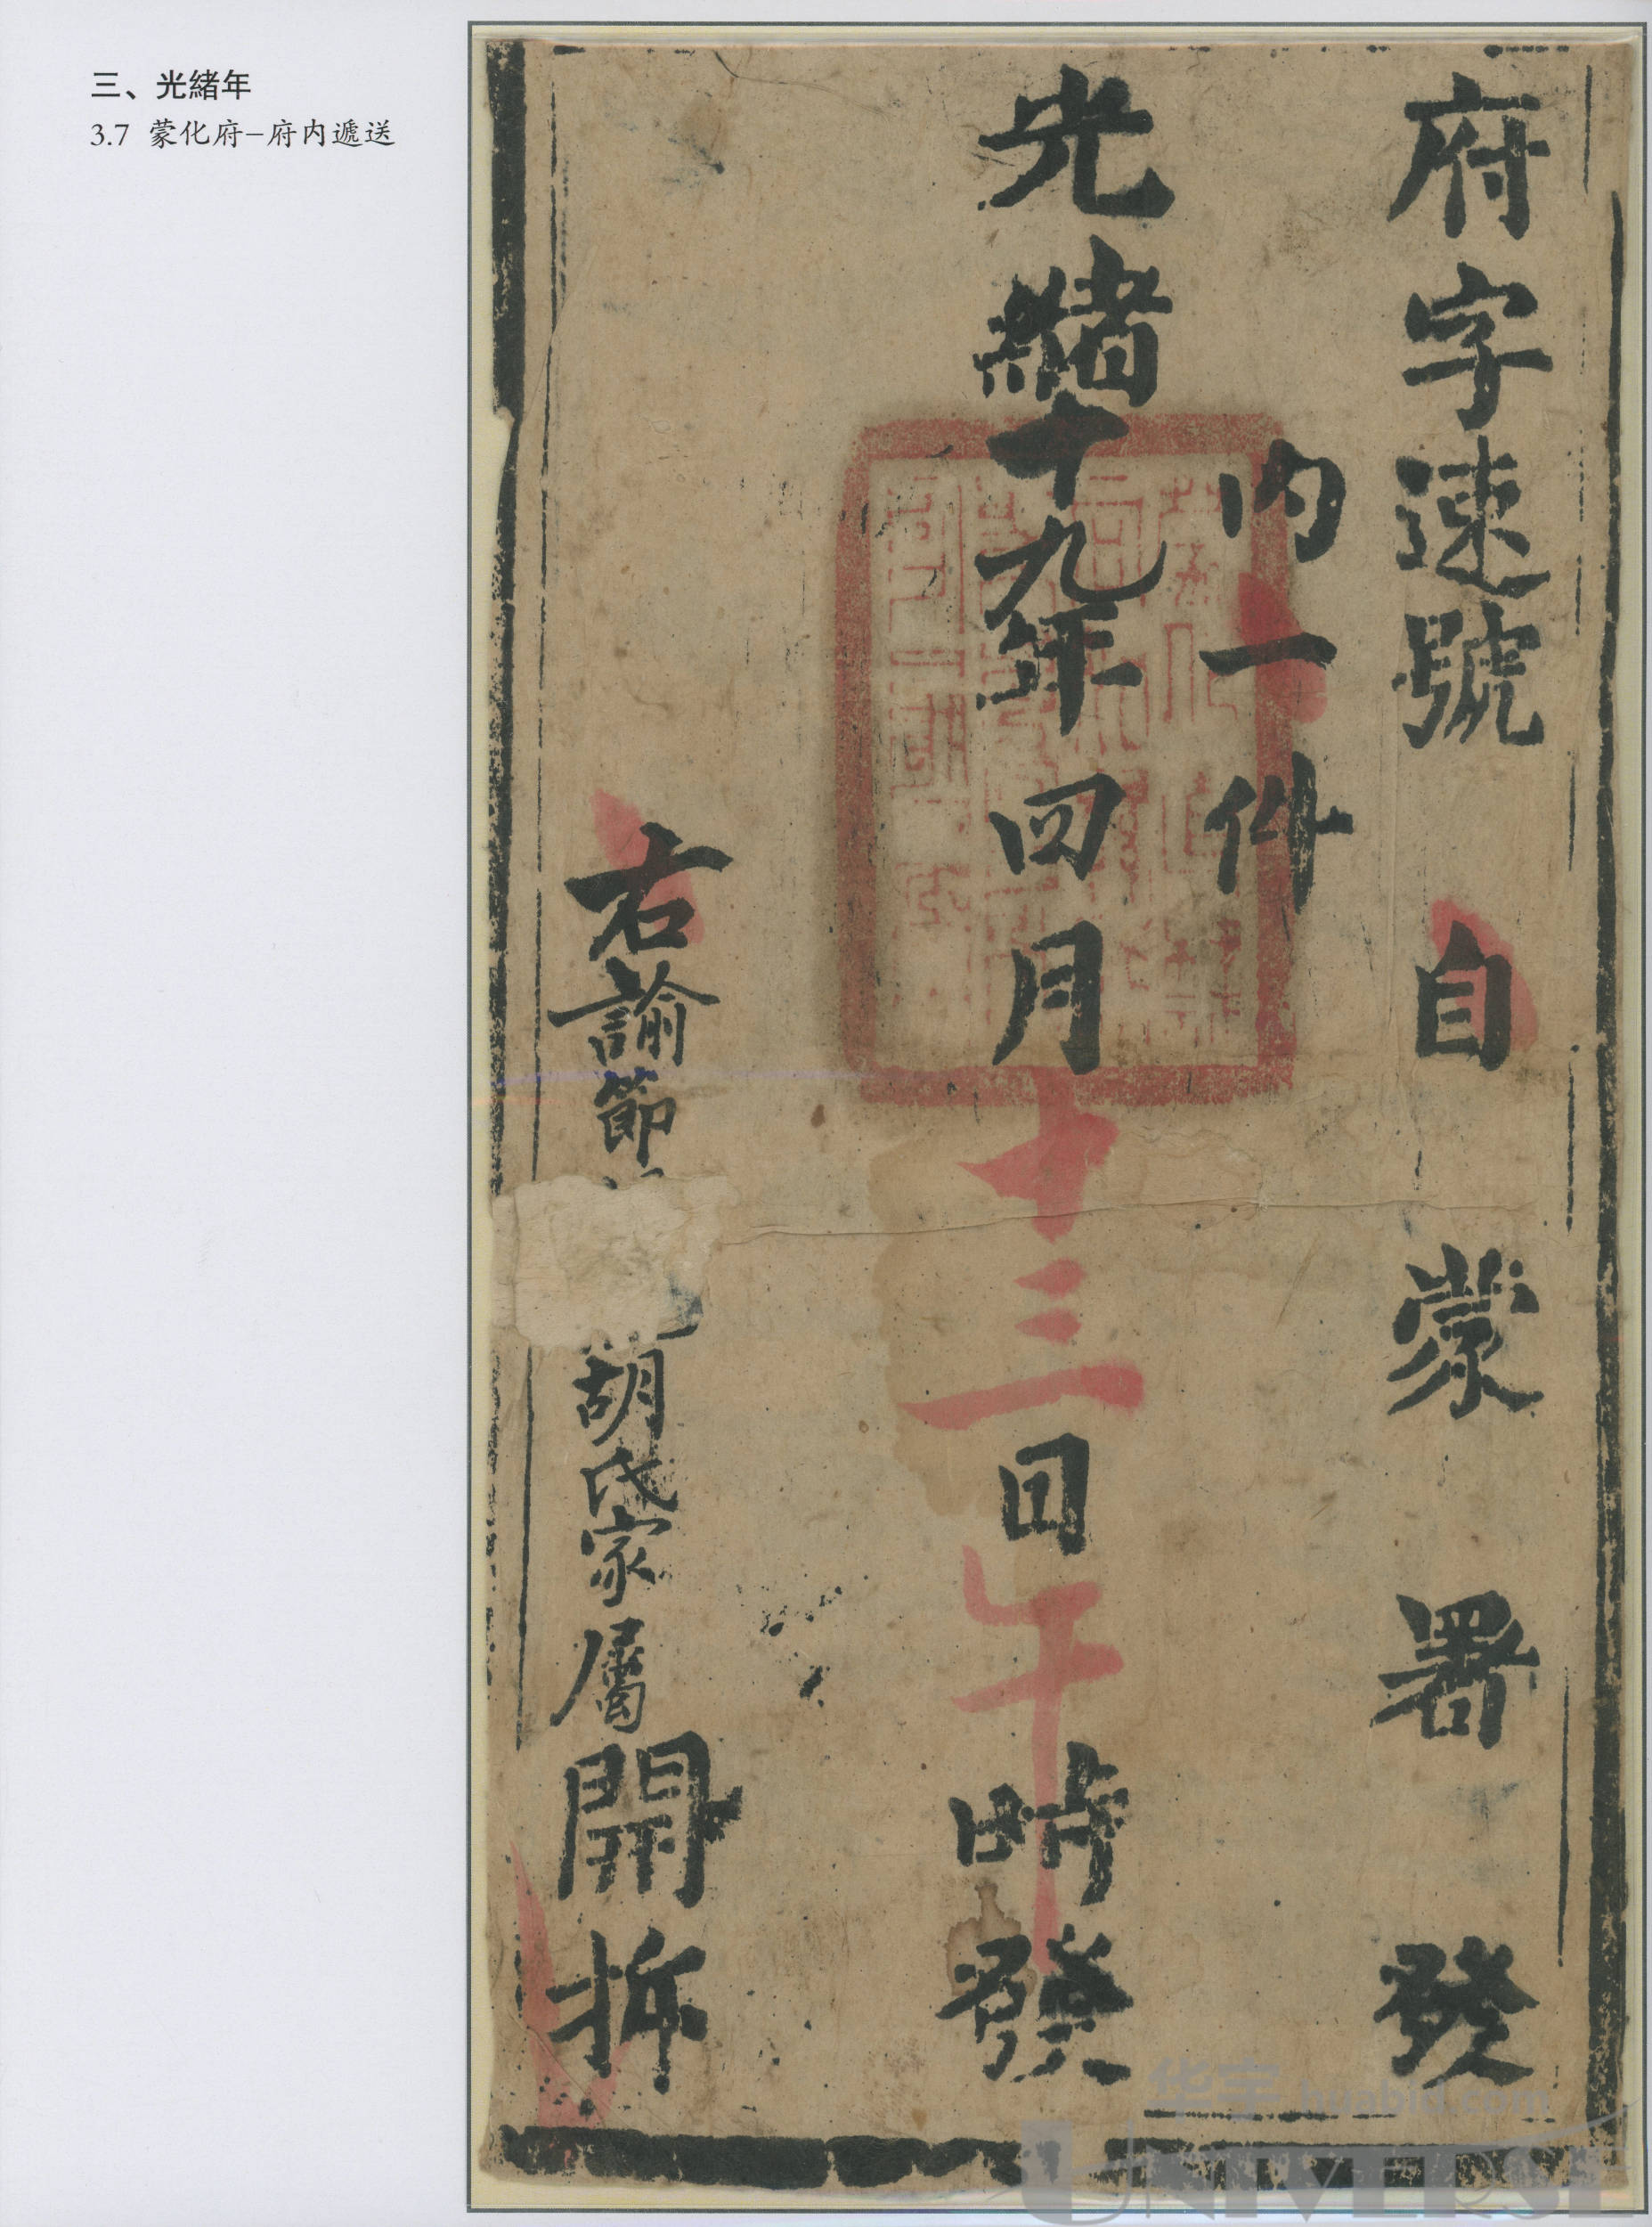 三、光緒年
3.7 蒙化府–府内遞送
府字速號 自蒙署發
内一件
光緒十九年四月十三日午時發
右諭節 胡氏家屬開拆
华宇 huabid.com
UNIVERSE